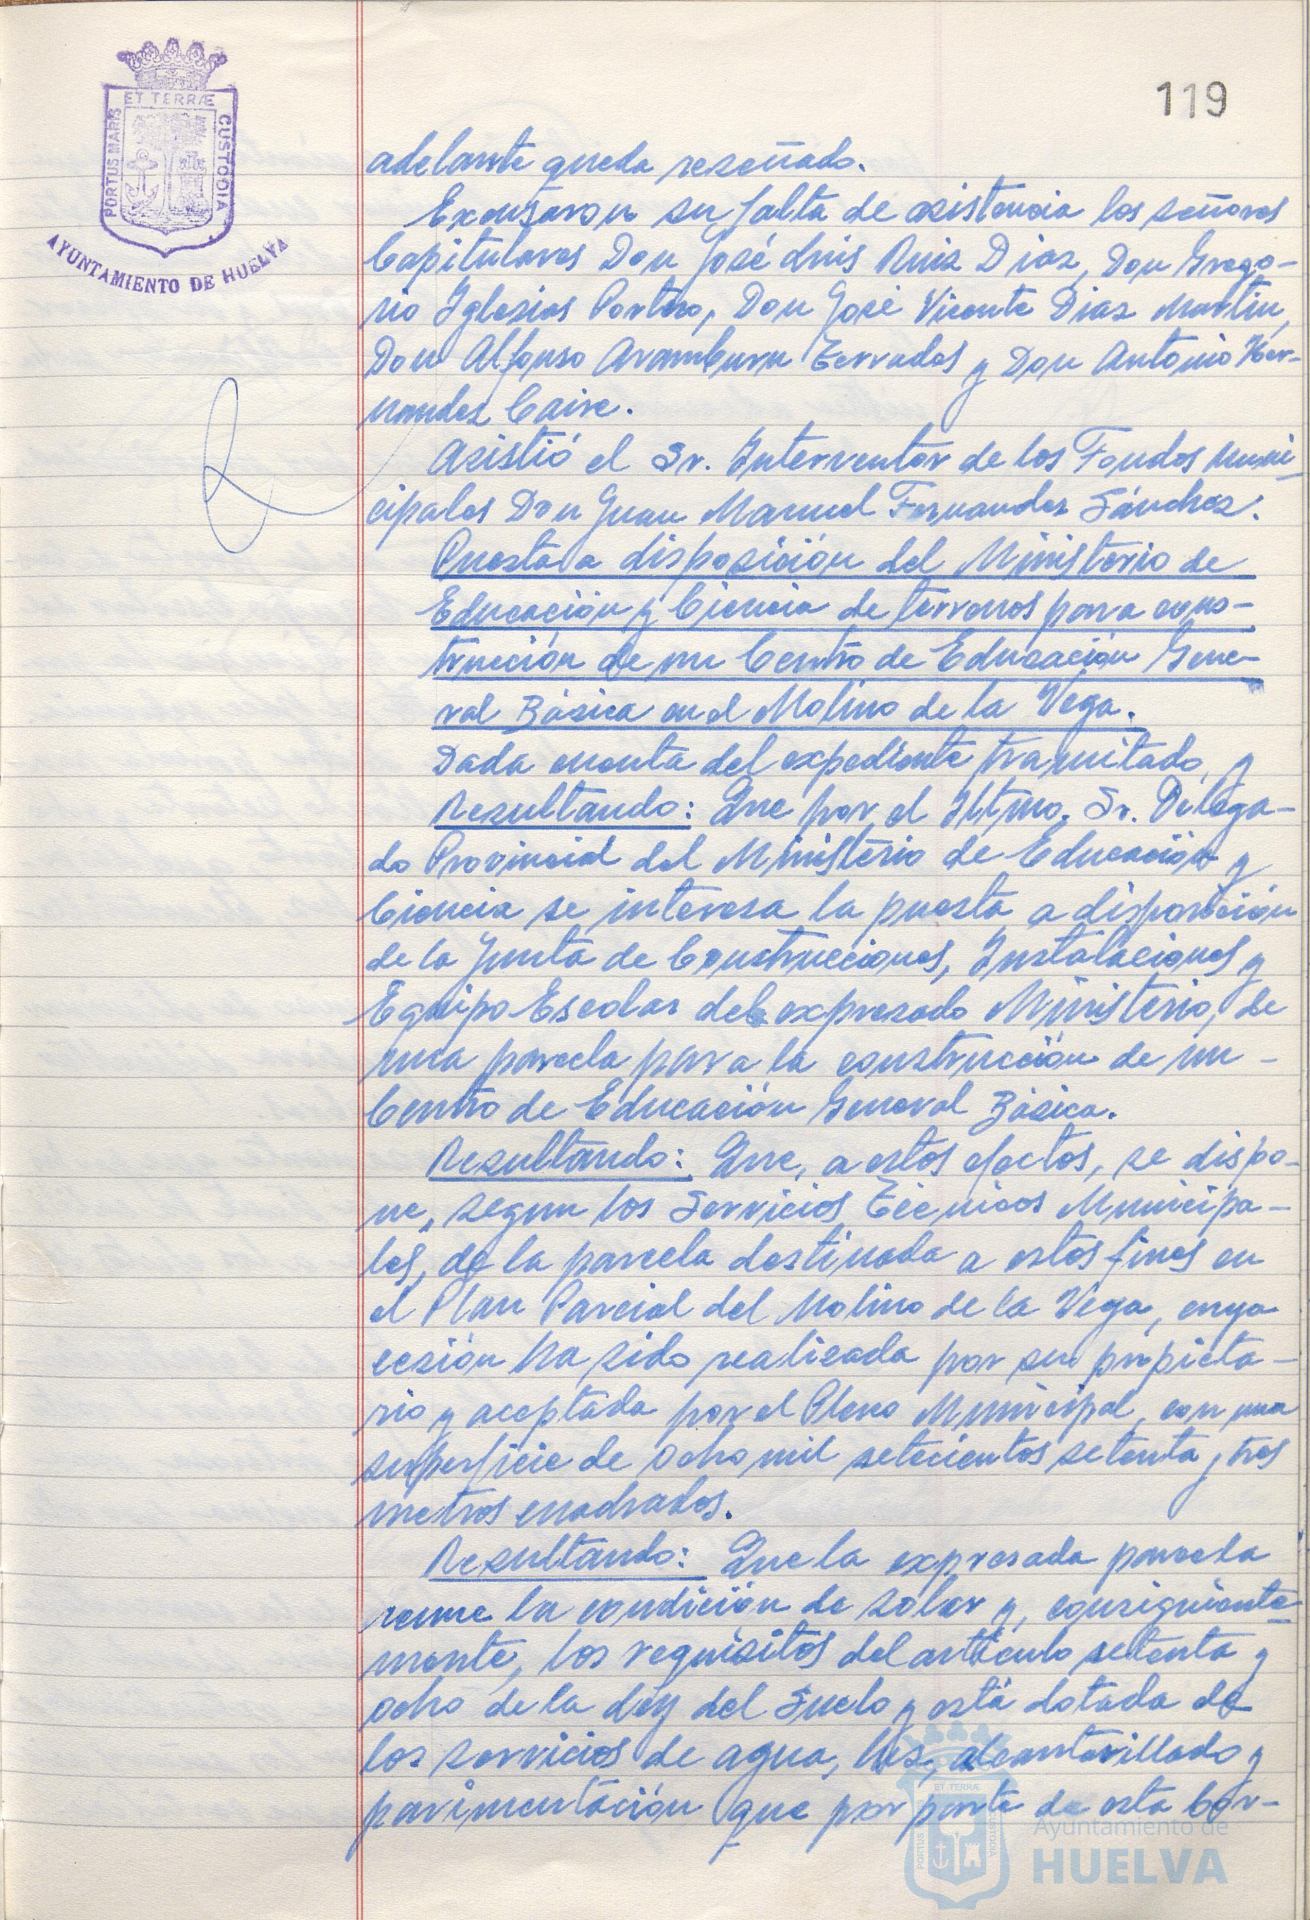 119
ET TERRÆ
PORTUS MARIS
CUSTODIA
AYUNTAMIENTO DE HUELVA
adelante queda reseñado.
Excusaron su falta de asistencia los señores
Capitulares Don José Luis Ruiz Diaz, Don Grego-
rio Iglesias Portero, Don José Vicente Diaz Martin,
Don Alfonso Aramburu Terrades y Don Antonio Her-
nandez Caire.
Asistió el Sr. Interventor de los Fondos Muni-
cipales Don Juan Manuel Fernandez Sánchez.
Puesta a disposición del Ministerio de
Educación y Ciencia de terrenos para cons-
trucción de un Centro de Educación Gene-
ral Básica en el Molino de la Vega.
Dada cuenta del expediente tramitado, y
Resultando: Que por el Iltmo. Sr. Delega-
do Provincial del Ministerio de Educación y
Ciencia se interesa la puesta a disposición
de la Junta de Construcciones, Instalaciones y
Equipo Escolar del expresado Ministerio, de
una parcela para la construcción de un -
Centro de Educación General Básica.
Resultando: Que, a estos efectos, se dispo-
ne, segun los Servicios Técnicos Municipa-
les, de la parcela destinada a estos fines en
el Plan Parcial del Molino de la Vega, cuya
cesión ha sido realizada por su propieta-
rio y aceptada por el Pleno Municipal, con una
superficie de ocho mil setecientos setenta y tres
metros cuadrados.
Resultando: Que la expresada parcela
reune la condición de solar y, consiguiente-
mente, los requisitos del artículo setenta y
ocho de la Ley del Suelo y está dotada de
los servicios de agua, luz, alcantarillado y
pavimentación que por parte de esta Cor-
ET TERRÆ
PORTUS
CUSTODIA
Ayuntamiento de
HUELVA